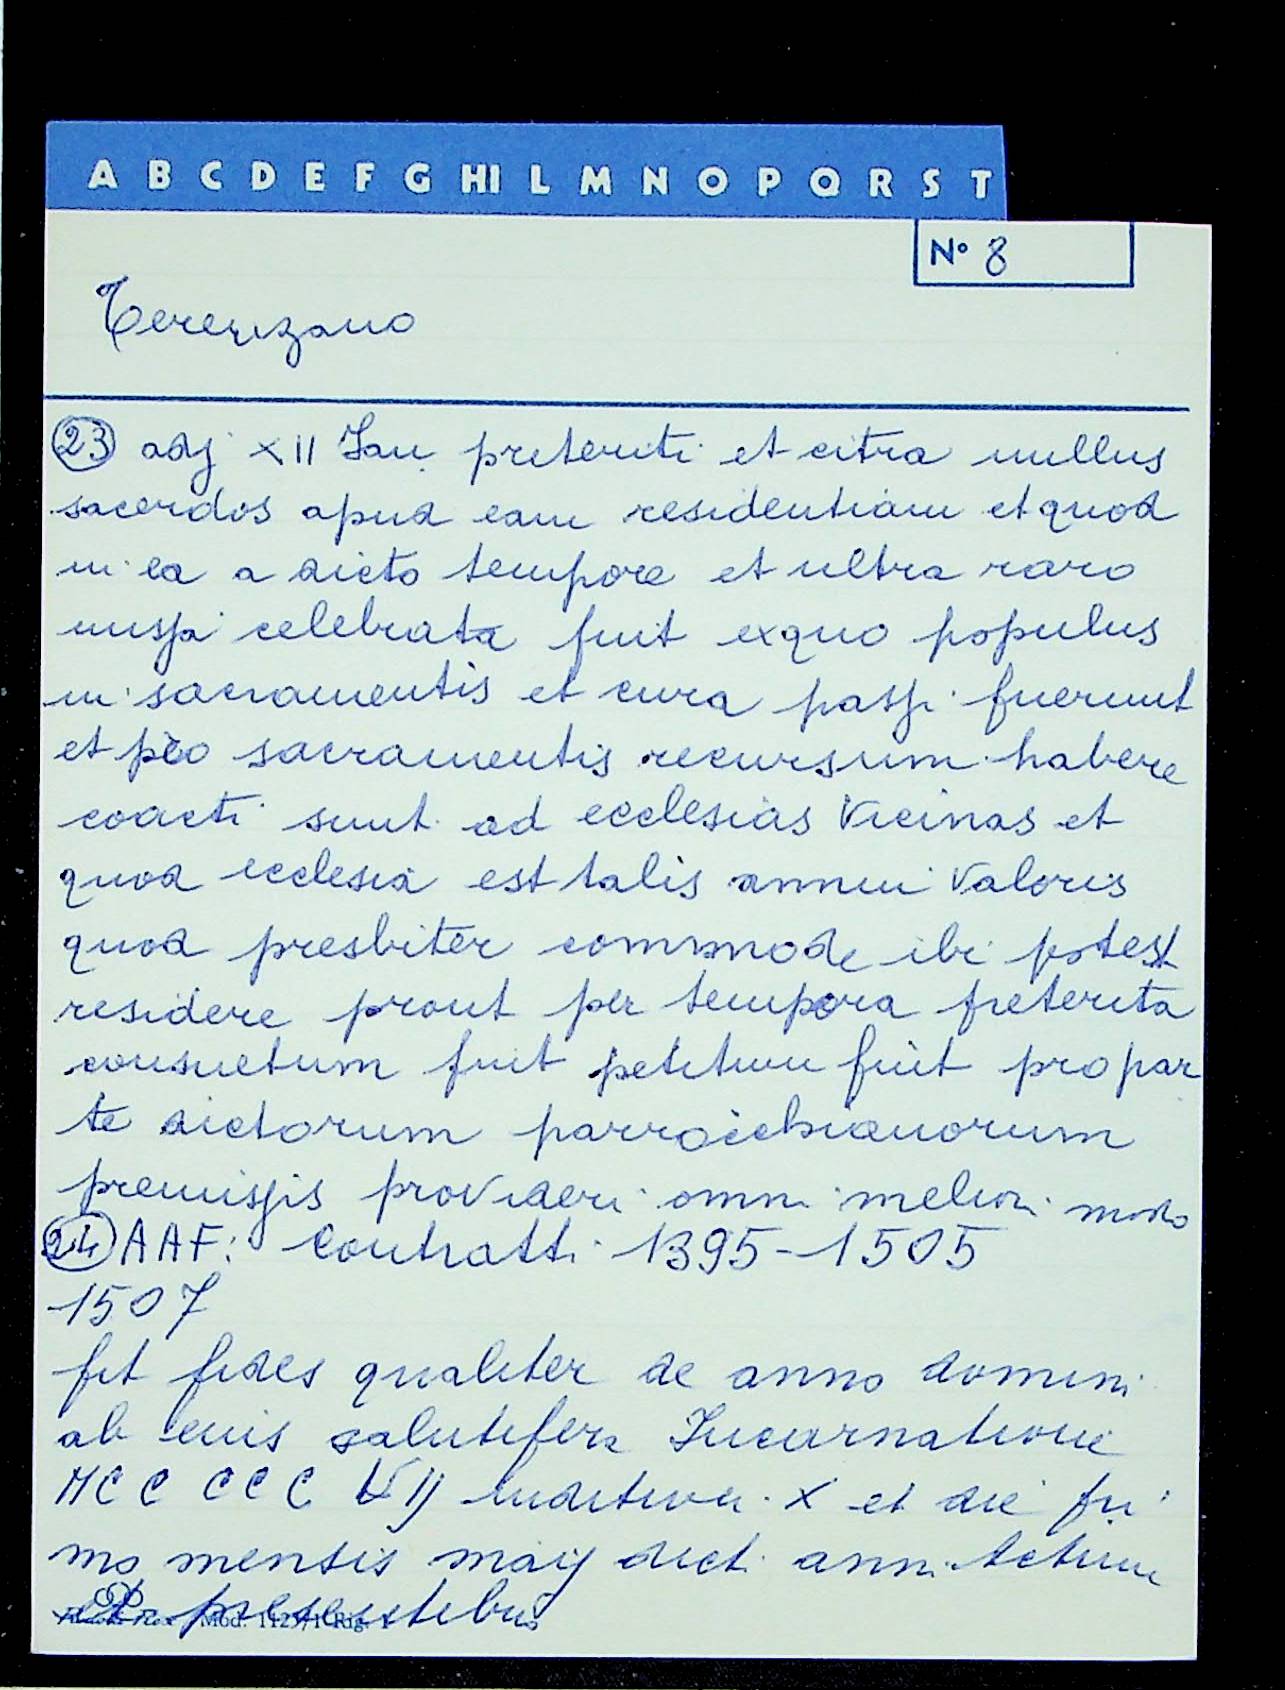 A B C D E F G HI L M N O P Q R S T
N° 8
Terenzano
23 adj XII Jan. preteriti et citra nullus
sacerdos apud eam residentiam et quod
in ea a dicto tempore et ultra raro
missa celebrata fuit ex quo populus
in sacramentis et cura passi fuerunt
et pro sacramentis recursum habere
coacti sunt ad ecclesias vicinas et
quod ecclesia est talis annui valoris
quod presbiter commode ibi potest
residere prout per tempora preterita
consuetum fuit petitum fuit pro par
te dictorum parrochianorum
premissis provideri omni meliori modo
24 AAF: Contratti 1395-1505
1507
fit fides qualiter de anno domini
ab eius salutifera Incarnatione
MCC CCC VIJ inditione X et die pri
mo mensis maij dicti anni Actum
presentibus
Mod. 1125/1 Rig. 1